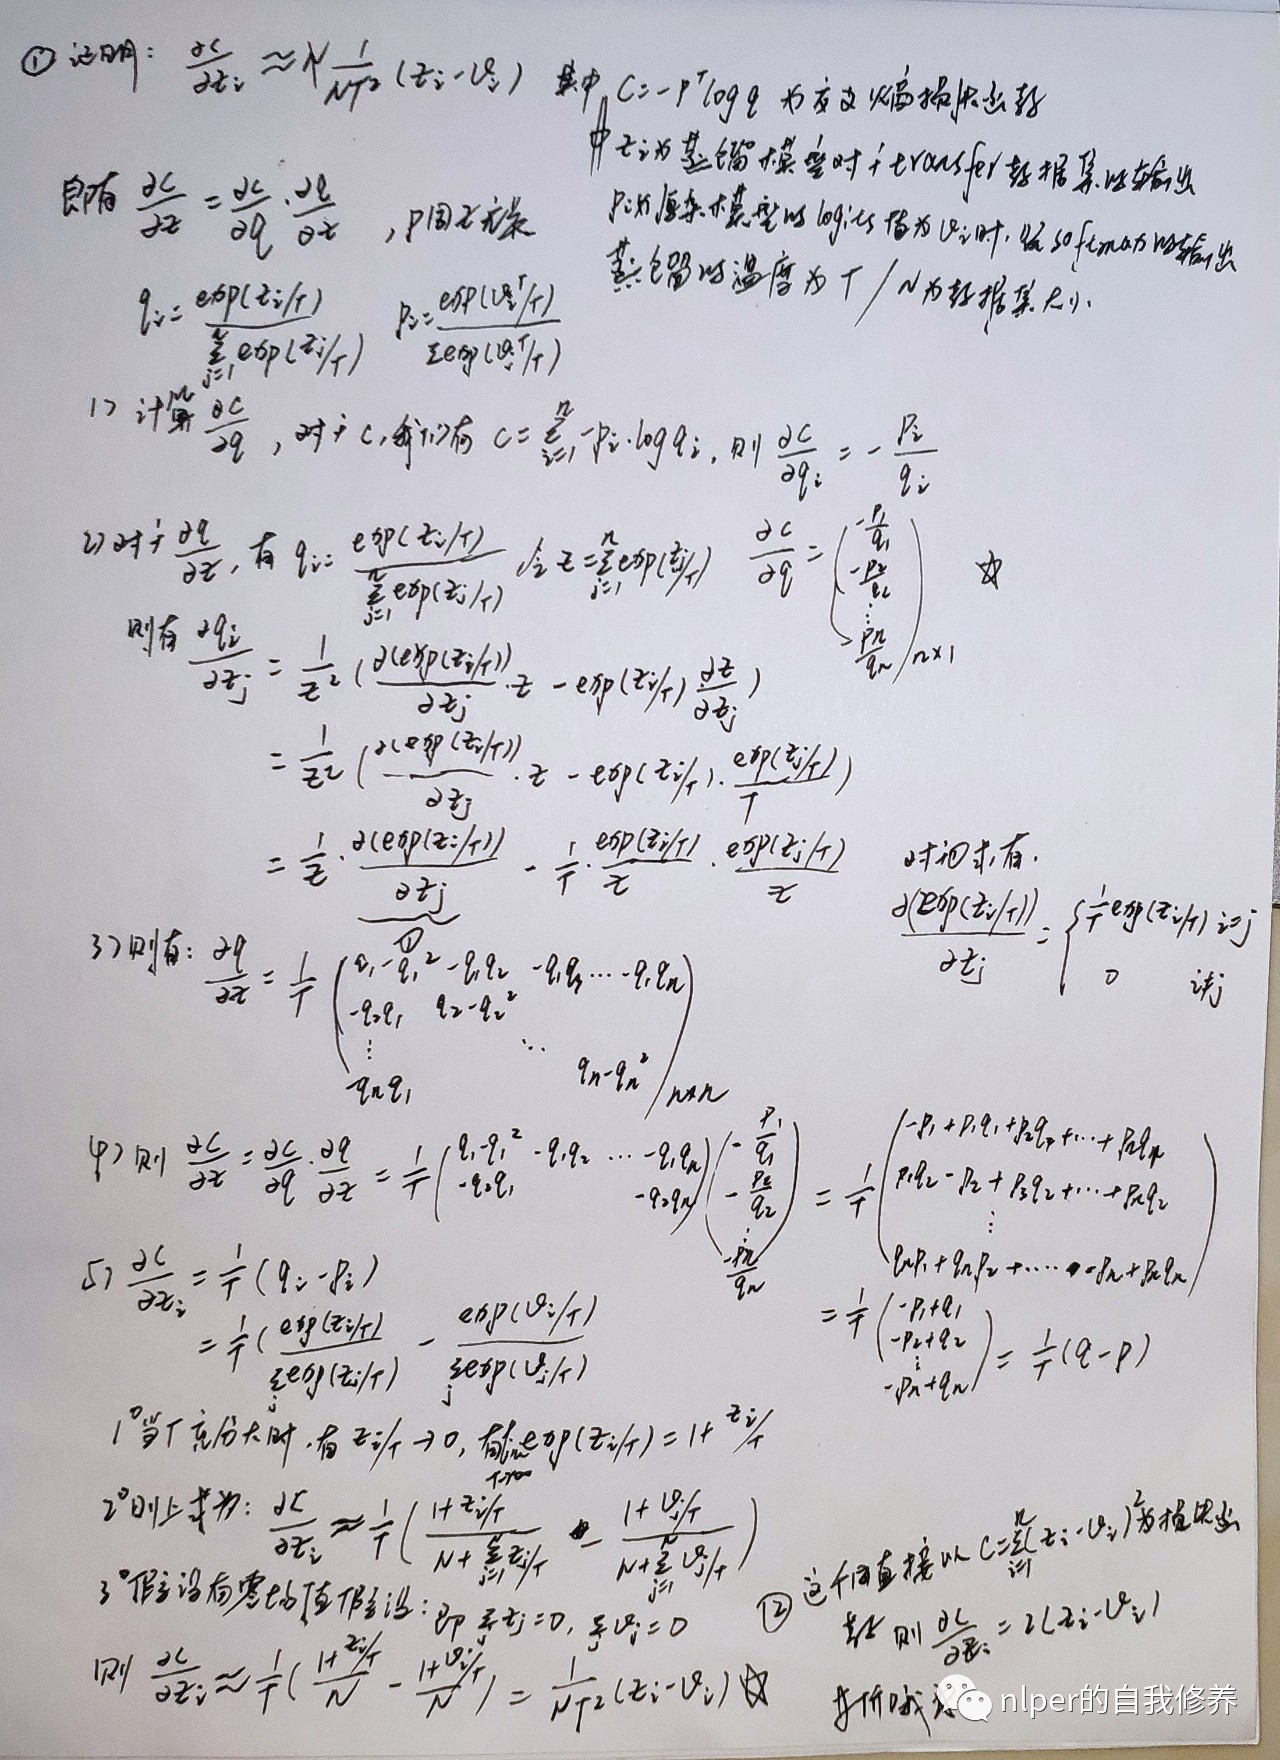 ① 证明: ∂C/∂z_i ≈ 1/(NT²) (z_i - v_i) 其中 C = -p^T log q 为交叉熵损失函数
z_i为蒸馏模型对于transfer数据集的输出
p_i为原来模型的logits值为v_i时,经softmax的输出
蒸馏的温度为T / N为数据集大小.
即有 ∂C/∂z = ∂C/∂q · ∂q/∂z , p同z无关
q_i = exp(z_i/T) / Σ_{j=1}^{n} exp(z_j/T) p_i = exp(v_i/T) / Σ exp(v_j/T)
1) 计算 ∂C/∂q , 对于C,我们有 C = Σ_{i=1}^{n} -p_i·log q_i , 则 ∂C/∂q_i = - p_i/q_i
2) 对于 ∂q/∂z , 有 q_i = exp(z_i/T) / Σ_{j=1}^{n} exp(z_j/T) 令 z = Σ_{j=1}^{n} exp(z_j/T) ∂C/∂q = (-p_1/q_1, -p_2/q_2, ⋮, -p_n/q_n) n×1 ☆
则有 ∂q_i/∂z_j = 1/z² ( ∂(exp(z_i/T))/∂z_j · z - exp(z_i/T) ∂z/∂z_j )
= 1/z² ( ∂(exp(z_i/T))/∂z_j · z - exp(z_i/T) · exp(z_j/T)/T )
= 1/z · ∂(exp(z_i/T))/∂z_j - 1/T · exp(z_i/T)/z · exp(z_j/T)/z
①
对①式,有.
∂(exp(z_i/T))/∂z_j = { 1/T exp(z_i/T) i=j
0 i≠j
3) 则有: ∂q/∂z = 1/T ( q_1-q_1² -q_1q_2 -q_1q_3 ⋯ -q_1q_n
-q_2q_1 q_2-q_2²
⋮ ⋱
-q_nq_1 q_n-q_n² ) n×n
4) 则 ∂C/∂z = ∂C/∂q · ∂q/∂z = 1/T ( q_1-q_1² -q_1q_2 ⋯ -q_1q_n
-q_2q_1 -q_2q_n ) ( -p_1/q_1, -p_2/q_2, ⋮, -p_n/q_n )
= 1/T ( -p_1+p_1q_1+p_2q_1+⋯+p_nq_1
p_1q_2-p_2+p_3q_2+⋯+p_nq_2
⋮
q_np_1+q_np_2+⋯-p_n+p_nq_n )
= 1/T ( -p_1+q_1, -p_2+q_2, ⋮, -p_n+q_n ) = 1/T (q-p)
5) ∂C/∂z_i = 1/T (q_i-p_i)
= 1/T ( exp(z_i/T) / Σ_j exp(z_j/T) - exp(v_i/T) / Σ_j exp(v_j/T) )
1° 当T充分大时,有 z_i/T → 0, 有 lim_{T→∞} exp(z_i/T) = 1 + z_i/T
2° 则上式为: ∂C/∂z_i ≈ 1/T ( (1+z_i/T) / (N+Σ_{j=1}^{n} z_j/T) - (1+v_i/T) / (N+Σ_{j=1}^{n} v_j/T) )
3° 假设有零均值假设: 即 Σ_j z_j=0, Σ_j v_j=0
则 ∂C/∂z_i ≈ 1/T ( (1+z_i/T)/N - (1+v_i/T)/N ) = 1/(NT²) (z_i-v_i) ☆
② 这个同直接以 C = Σ_{i=1}^{n} (z_i-v_i)² 为损失函
数 则 ∂C/∂z_i = 2(z_i-v_i)
等价
nlper的自我修养